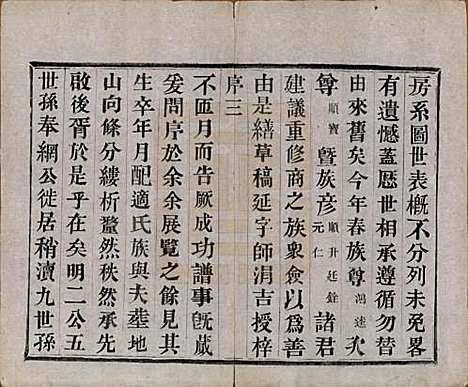 房系圖世表概不分列未免畧
有遺憾蓋歷世相承遵循勿替
由來舊矣今年春族尊鴻逵
尊順寶暨族彦順升廷銓元仁諸君
建議重修商之族衆僉以為善
由是繕草稿延字師涓吉授梓
序三
不匝月而告厥成功譜事旣蕆
爰問序於余余展覽之餘見其
生卒年月配適氏族與夫塟地
山向條分縷析鰲然秩然承先
啟後胥於是乎在矣明二公五
世孫奉網公徙居稍瀆九世孫